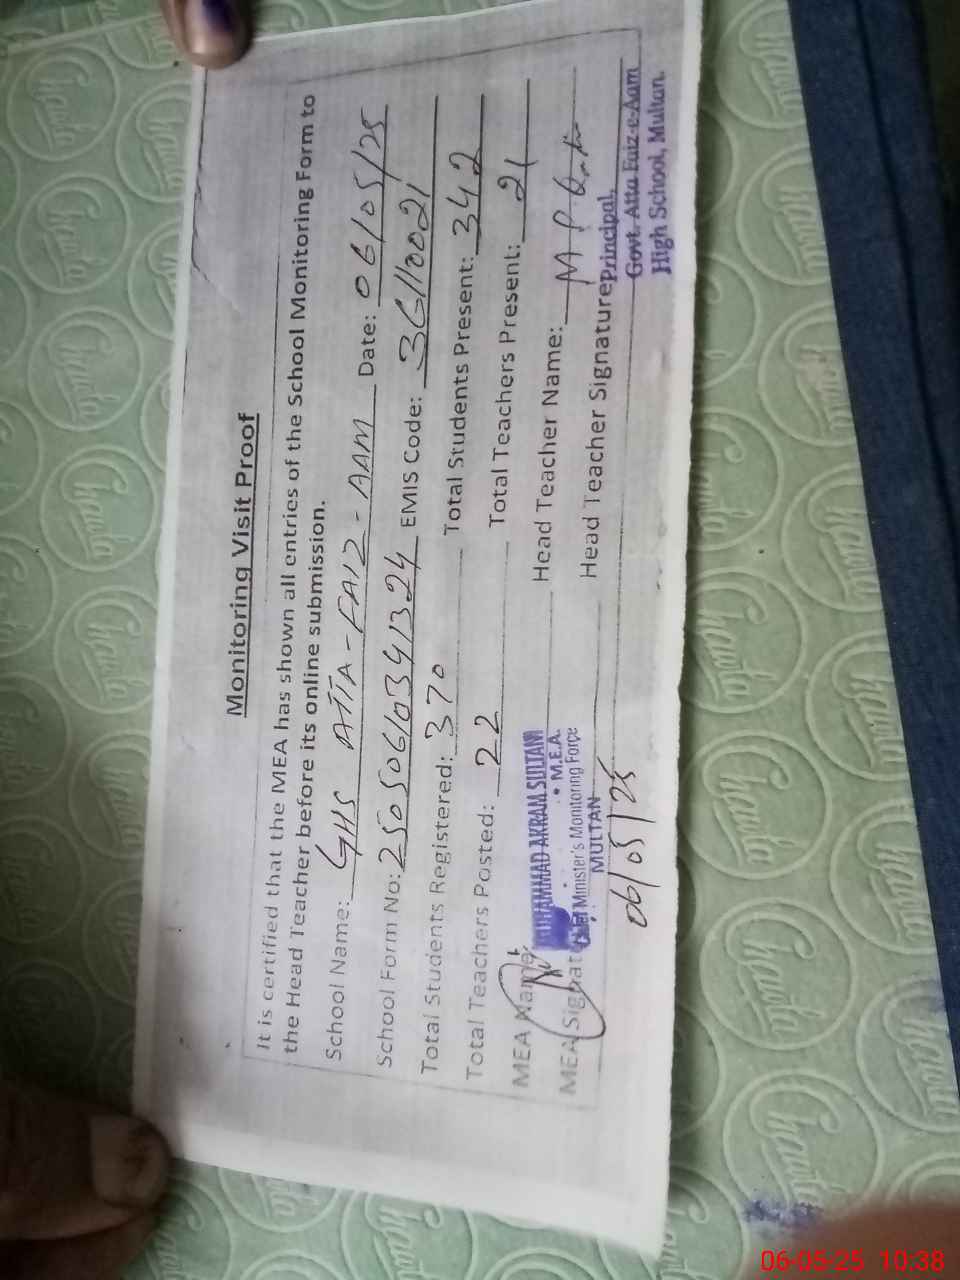 Monitoring Visit Proof
It is certified that the MEA has shown all entries of the School Monitoring Form to
the Head Teacher before its online submission.
School Name: GHS ATTA-FAIZ-AAM Date: 06/05/25
School Form No: 25050610341324 EMIS Code: 36110021
Total Students Registered: 370 Total Students Present: 342
Total Teachers Posted: 22 Total Teachers Present: 21
MEA Name: MUHAMMAD AKRAM SULTANI Head Teacher Name:
M.E.A.
MEA Signature Chief Minister's Monitoring Force Head Teacher Signature Principal,
MULTAN Govt. Atta Faiz-e-Aam
High School, Multan.
06/05/25
Chawla
06-05-25 10:38